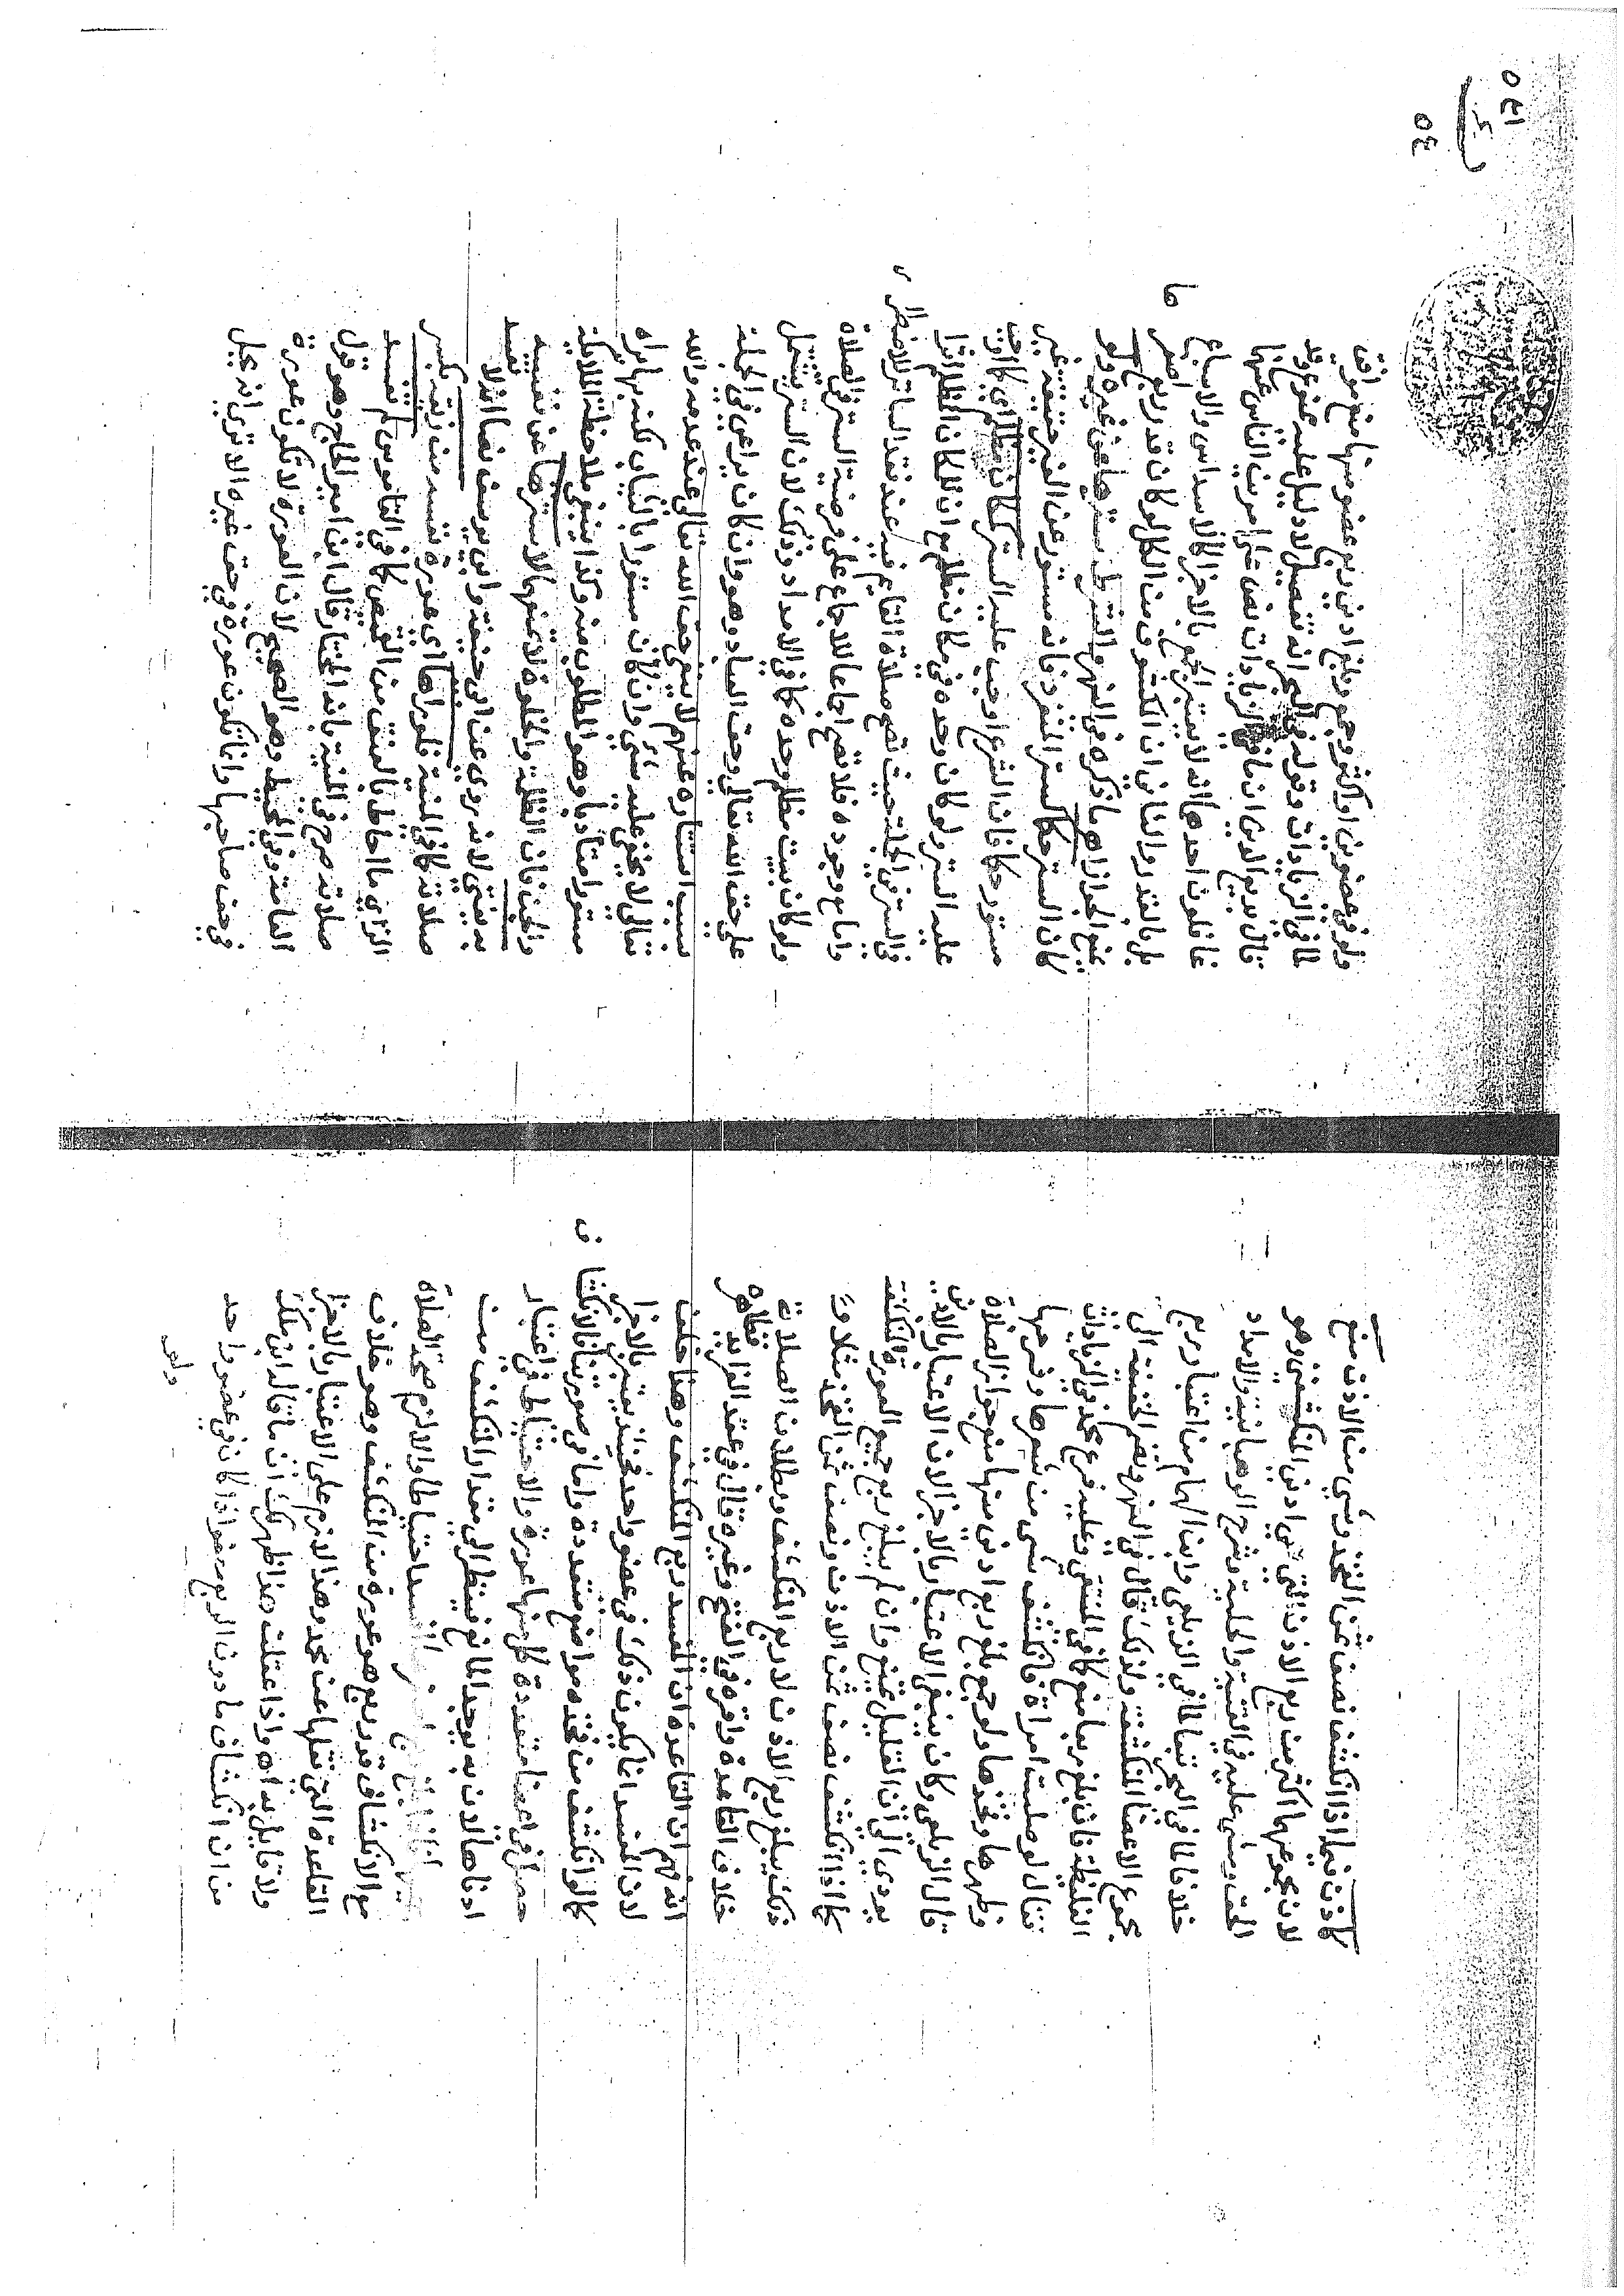 كاذن فيما اذا انكشف نصف ثمن الفخذ وشيء من الاذن منع
لان مجموعهما اكثر من ربع الاذن التي هي ادنى المنكشفين وهو
الحق ومشى عليه في القنية والحلية وشرح الوهبانية والامداد
خلافا لما في البحر تبعا لما في الزيلعي وابن الهمام من اعتبار ربع
مجموع الاعضا المنكشفة ولذلك قال في النهر ويضم الخفيفة الى
الغليظة فان بلغ ربعا منع كما في المنتقى وعليه فرع محمد في الزيادات
فقال لو صلت امراة فانكشف شي من شعرها وفرجها
وظهرها وفخذها ولو جمع بلغ ربع ادنى منها منع جواز الصلاة
قال الزيلعي وكان ينبغي الاعتبار بالاجزا لان الاعتبار بالادنى
يودي الى ان القليل يمنع وان لم يبلغ ربع جميع العورة المنكشفة
كما اذا انكشف نصف ثمن الاذن ونصف ثمن الفخذ مثلا
ذلك يبلغ ربع الاذن لا ربع المنكشف وبطلان الصلاة
خلاف القاعدة واقره في الفتح وغيره قال في عقد الفرايد فظاهره
انه فهم ان القاعدة ان المفسد ربع المنكشف وهذا خلف
لان المفسد انما يكون ذلك في عضو واحد فحينئذ يعتبر بالاجزا
كما لو انكشف من فخذه مواضع متعددة واما في صورتنا فالانكشا
حصل في اعضا متعددة كل منها عورة والاحتياط في اعتبار
ادناها لان به يوجد المانع فينظر الى مقدار المنكشف
احتياطا والا لزم صحة الصلاة
مع الانكشاف قدر ربع هو عورة من المنكشف وهو خلاف
القاعدة التي نقلها عن محمد وهذا لازم على الاعتبار بالاجزا
ولا قايل به اه واذا عقلت هذا ظهر لك ان ما قاله ابن ملك
من ان انكشاف ما دون الربع معفو اذا كان في عضو واحد
ولو
ولو في عضوين او اكثر وجمع وبلغ ادنى ربع عضو منها منع موافق
لما في الزيادات وقوله في البحر انه تفصيل لا دليل عليه ممنوع وقد
قال بديع الدين ان ما في الزيادات نص على امرين الناس عنهما
غافلون احدهما انه لا يعتبر الجمع بالاجزا كالاسداس والاسباع
بل بالقدر والثاني ان المكشوف من الكل لو كان قدر ربع اصغر
يمنع الجواز اه ما ذكره في النهر والشرط سترها عن غيره ولو
كان الستر حكما كستر المنفرد فانه مستور عن الغير حقيقة غير
مستور حكما فان الشرع اوجب عليه الستر كمكان مظلم اي كما وجب
عليه الستر لو كان وحده في مكان مظلم مع ان للمكان المظلم اثرا
في الستر في الجملة حيث تصح صلاة القاعد فيه عند فقد الساتر للاضطرار
واما مع وجوده فلا تصح اجماعا للاجماع على فرضية الستر في الصلاة
ولو كان ببيت مظلم وحده كما في الامداد وذلك لان الستر يشتمل
على حق الله تعالى وحق العباد وهو وان كان يراعى في الجملة
بسبب استتاره عنهم لا يبقى حق الله تعالى عنده عدمه والله
تعالى لا يخفى عليه شي وان كان مستورا بالثياب لكنه يراه
مستورا متادبا وهو المطلوب منه وكذا ينبغي ملاحظة الملايكة
والجن فان الظلمة والخلوة لا تمنعهم لا سترها عن نفسه
به يفتى لانه روي عن ابي حنيفة وابي يوسف نصا انه لا تفسد
صلاته كما في المنية فلو راها اي عورة نفسه من زيقه بكسر
الزاي ما احاط بالعنق من القميص كما في القاموس لم تفسد
صلاته صرح في المنية بانه المختار وقال ابن امير الحاج وهو قول
العامة وفي المحيط وهو الصحيح لان العورة لا تكون عورة
في حق صاحبها وانما تكون عورة في حق غيره الا ترى انه يحل